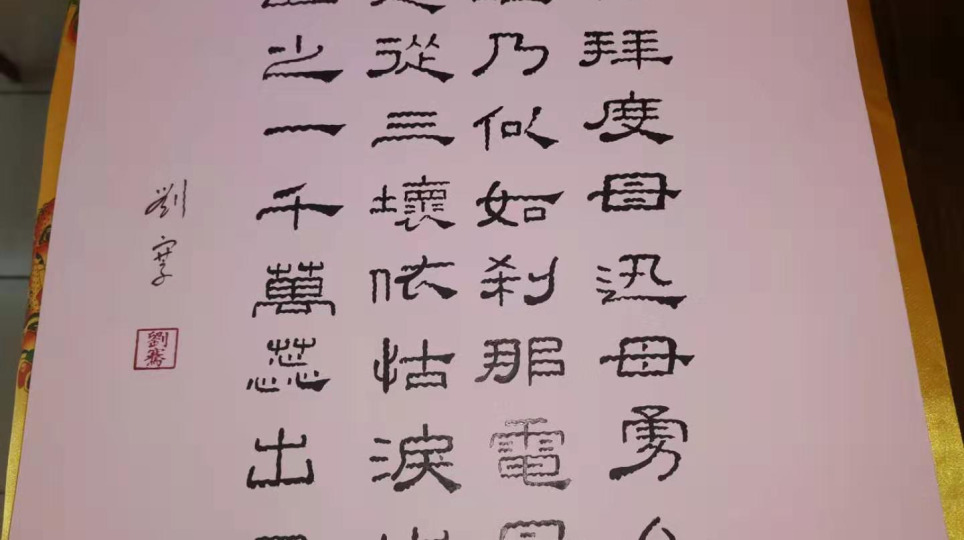 拜度母迅母勇
乃似如刹那電
從三壞依怙淚
之一千萬蕊出
劉
劉